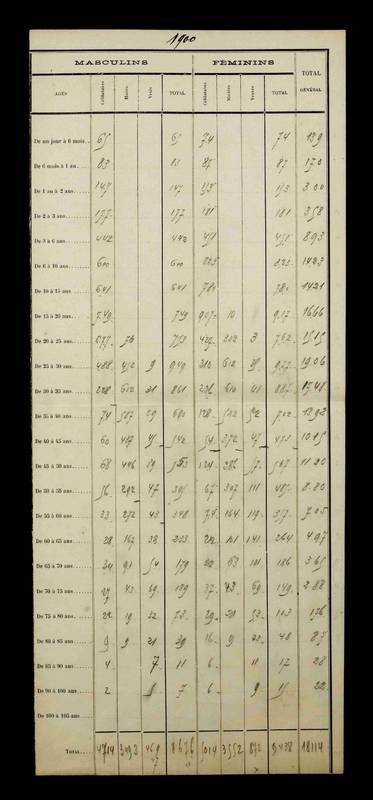 1900
MASCULINS FÉMININS TOTAL GÉNÉRAL
AGES Célibataires Mariés Veufs TOTAL Célibataires Mariées Veuves TOTAL
De un jour à 6 mois 65 65 74 74 139
De 6 mois à 1 an 83 83 87 87 170
De 1 an à 2 ans 147 147 153 153 300
De 2 à 3 ans 177 177 181 181 358
De 3 à 6 ans 442 442 451 451 893
De 6 à 10 ans 600 600
De 10 à 15 ans 641 641 780 780 1421
De 15 à 20 ans 749 749 907 10 917 1666
De 20 à 25 ans 677 76 753 302 3 762 1515
De 25 à 30 ans 488 452 9 949
De 30 à 35 ans 228 602 31 861 236 610 41 887 1748
De 35 à 40 ans 74 587 29 690 128 52 702 1392
De 40 à 45 ans 60 542
De 45 à 50 ans 68 446 39 553
De 50 à 55 ans 56 292 47 395 67 307 111 485 880
De 55 à 60 ans 33 272 43 348 74 164 119 357 705
De 60 à 65 ans 28 167 38 233 22 101 141 264 497
De 65 à 70 ans 34 91 54 179 22 63 101 186 365
De 70 à 75 ans 27 43 69 139 37 43 69 149 288
De 75 à 80 ans 22 19 32 73 29 103 176
De 80 à 85 ans 9 9 21 39 16 9 23 48 87
De 85 à 90 ans 4 7 11 6 11 17 28
De 90 à 100 ans 2 7 6 9 15 22
De 100 à 105 ans
TOTAL 4714 3493 469 8676 5014 3552 872 9438 18114